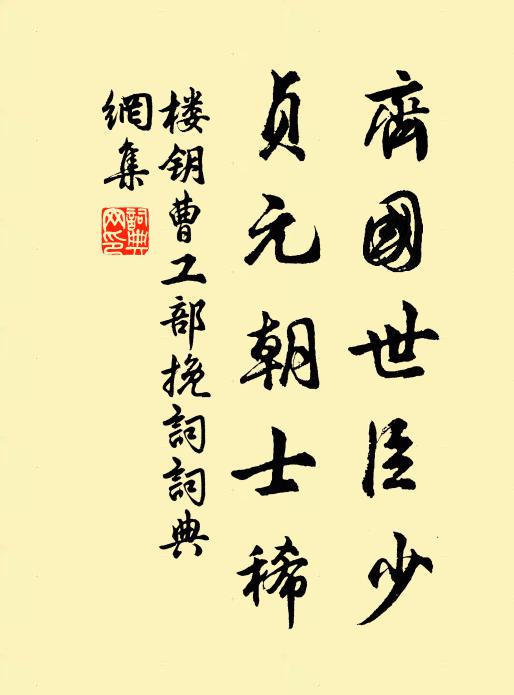 齊國世臣少
贞元朝士稀
楼钥曹工部挽詞詞典
網集
詞典網印